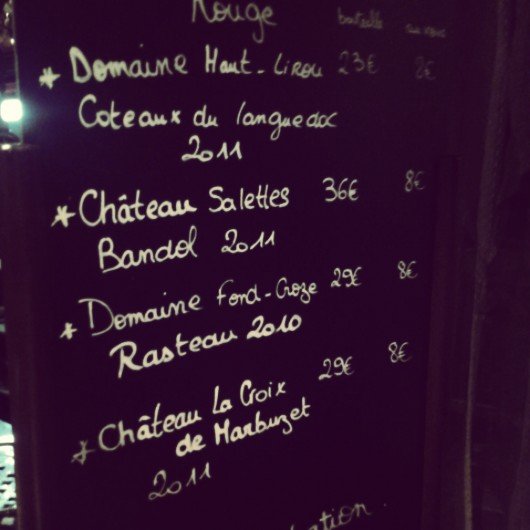 Rouge bouteille au verre
* Domaine Haut-Lirou 23€ 8€
Coteaux du languedoc
2011
* Château Salettes 36€ 8€
Bandol 2011
* Domaine Fond-Croze 29€ 8€
Rasteau 2010
* Château La Croix 29€ 8€
de Marbuzet
2011